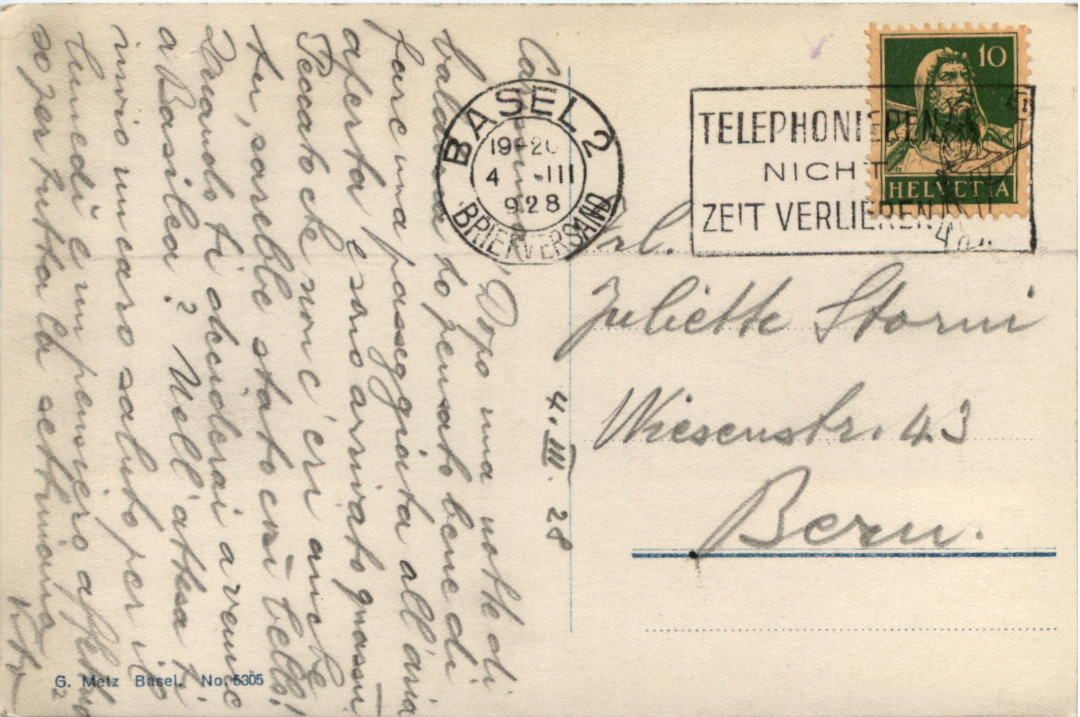 4. III. 28
Dopo una notte di
baldoria ho pensato bene di
fare una passeggiata all'aria
aperta e sono arrivato quassù.
Peccato che non c'eri anche
tu, sarebbe stato così bello!
Quando ti deciderai a venire
a Basilea? Nell'attesa ti
invio un caro saluto per il
lunedì e un pensiero
so per tutta la settimana
BASEL 2
19-20
4 III
928
BRIEFVERSAND
TELEPHONIEREN
NICHT
ZEIT VERLIEREN
10
HELVETIA
Frl.
Juliette Storni
Wiesenstr. 43
Bern.
G. Metz Basel. No. 5305